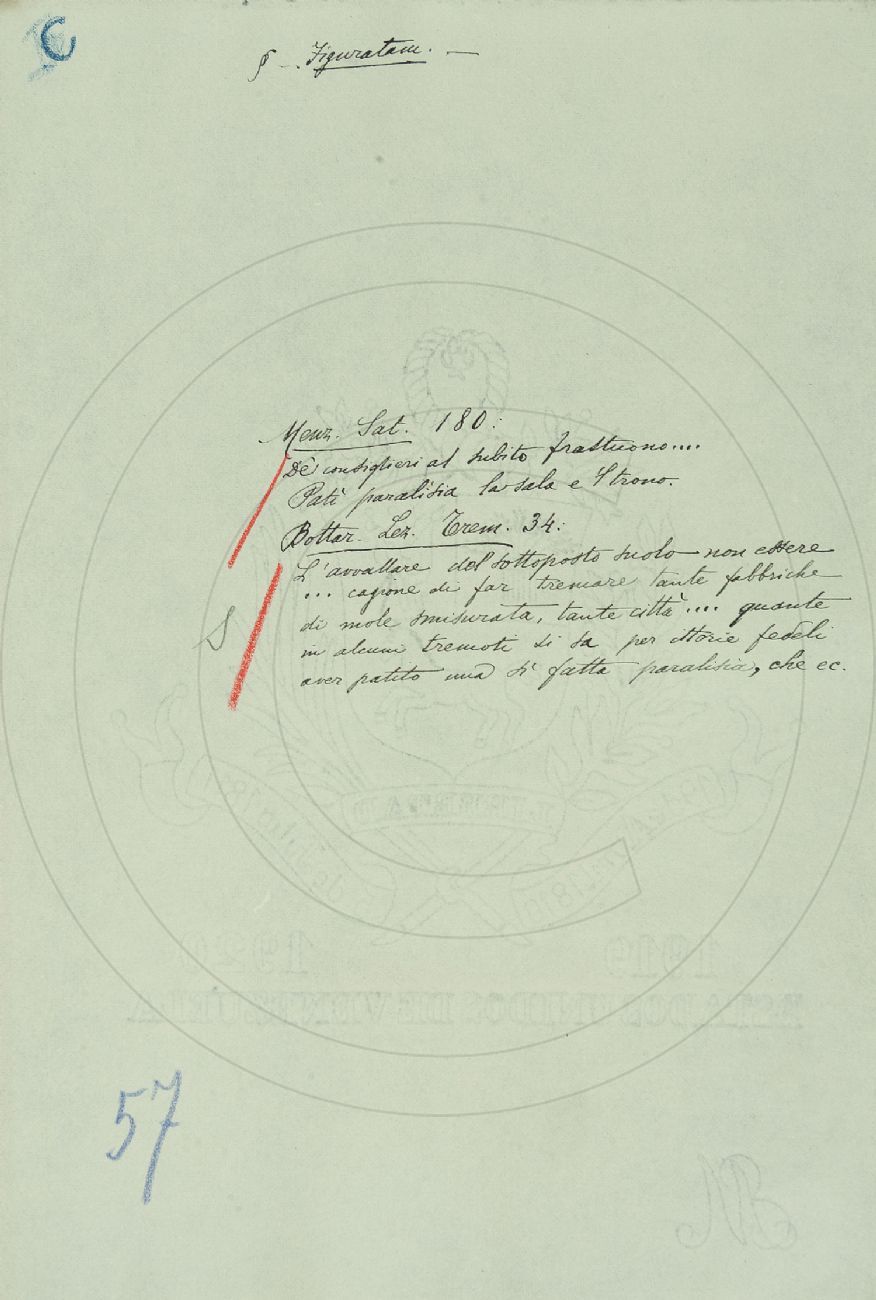 C
§ - Figuratam. -
Menz. Sat. 180:
De' consiglieri al subito frastuono....
Patì paralisìa la sala e 'l trono.
Bottar. Lez. Trem. 34:
L'avvallare del sottoposto suolo non essere
... cagione di far tremare tante fabbriche
di mole smisurata, tante città .... quante
in alcuni tremoti si sa per istorie fedeli
aver patito una sì fatta paralisia, che ec.
S
1920 1919
ESTADOS UNIDOS DE VENEZUELA
57